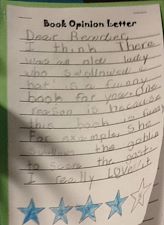 Book Opinion Letter
Dear Reader,
I think There
was an old lady
who swallowed a
bat is a funny
book for you. One
reason is because
this book is funny
For example, she
the goblin
to the
I really Love it